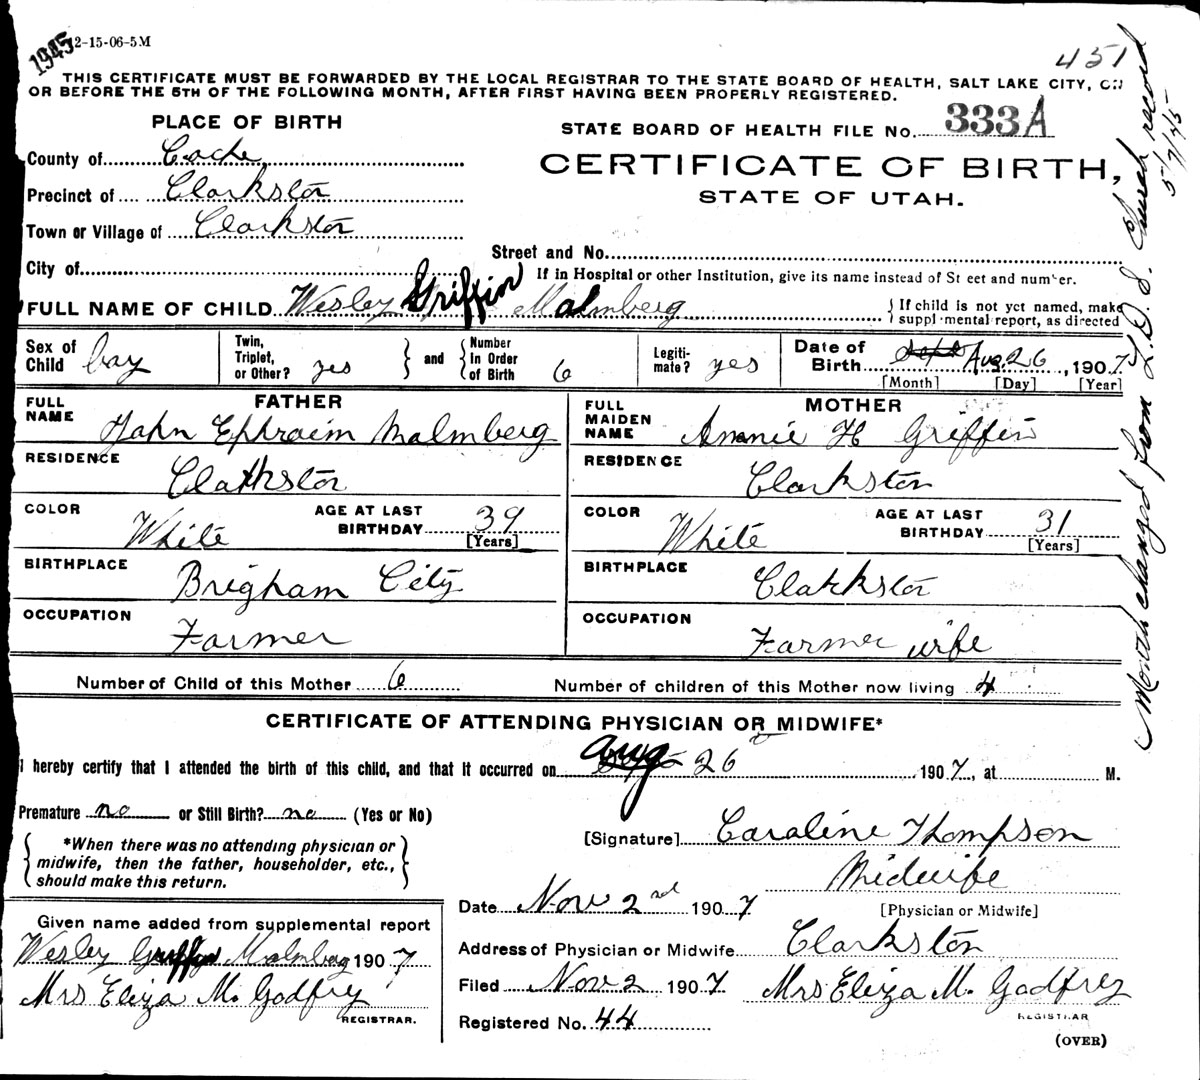 1945
2-15-06-5M
451
THIS CERTIFICATE MUST BE FORWARDED BY THE LOCAL REGISTRAR TO THE STATE BOARD OF HEALTH, SALT LAKE CITY, ON
OR BEFORE THE 5TH OF THE FOLLOWING MONTH, AFTER FIRST HAVING BEEN PROPERLY REGISTERED.
PLACE OF BIRTH
STATE BOARD OF HEALTH FILE No. 333A
County of Cache
CERTIFICATE OF BIRTH,
Precinct of Clarkston
STATE OF UTAH.
Town or Village of Clarkston
Street and No.
City of
If in Hospital or other Institution, give its name instead of St eet and number.
FULL NAME OF CHILD Wesley Griffin Malmberg
{ If child is not yet named, make
suppl mental report, as directed
Sex of Child boy
Twin, Triplet, or Other? yes
and
Number In Order of Birth 6
Legiti- mate? yes
Date of Birth Sept Aug. 26, 1907
[Month] [Day] [Year]
FATHER
FULL NAME John Ephraim Malmberg
RESIDENCE Clarkston
COLOR White
AGE AT LAST BIRTHDAY 39 [Years]
BIRTHPLACE Brigham City
OCCUPATION Farmer
MOTHER
FULL MAIDEN NAME Annie H Griffin
RESIDENCE Clarkston
COLOR White
AGE AT LAST BIRTHDAY 31 [Years]
BIRTHPLACE Clarkston
OCCUPATION Farmer wife
Number of Child of this Mother 6
Number of children of this Mother now living 4
CERTIFICATE OF ATTENDING PHYSICIAN OR MIDWIFE*
I hereby certify that I attended the birth of this child, and that it occurred on Aug 26 1907, at M.
Premature no or Still Birth? no (Yes or No)
*When there was no attending physician or
midwife, then the father, householder, etc.,
should make this return.
[Signature] Caraline Thompson
Midwife
[Physician or Midwife]
Date Nov 2nd 1907
Address of Physician or Midwife Clarkston
Filed Nov 2 1907 Mrs Eliza M. Godfrey
REGISTRAR
Registered No. 44
(OVER)
Given name added from supplemental report
Wesley Griffin Malmberg 1907
Mrs Eliza M. Godfrey
REGISTRAR.
Month changed from L.D.S. Church record
5/7/45